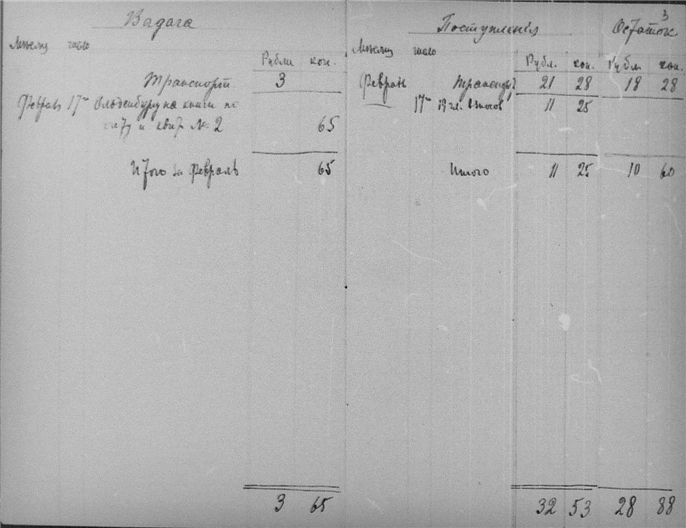 3
Выдача
Поступленія
Остатокъ
Мѣсяцъ число
Рубли коп.
Мѣсяцъ число
Рубл. коп.
Рубл. коп.
Транспортъ 3
Февраль Транспортъ 21 28 18 28
Февраль 17го Ольденбургу на книги по
17го Взносовъ 11 25
счету и квит № 2 65
Итого за Февраль 65
Итого 11 25 10 60
3 65
32 53 28 88